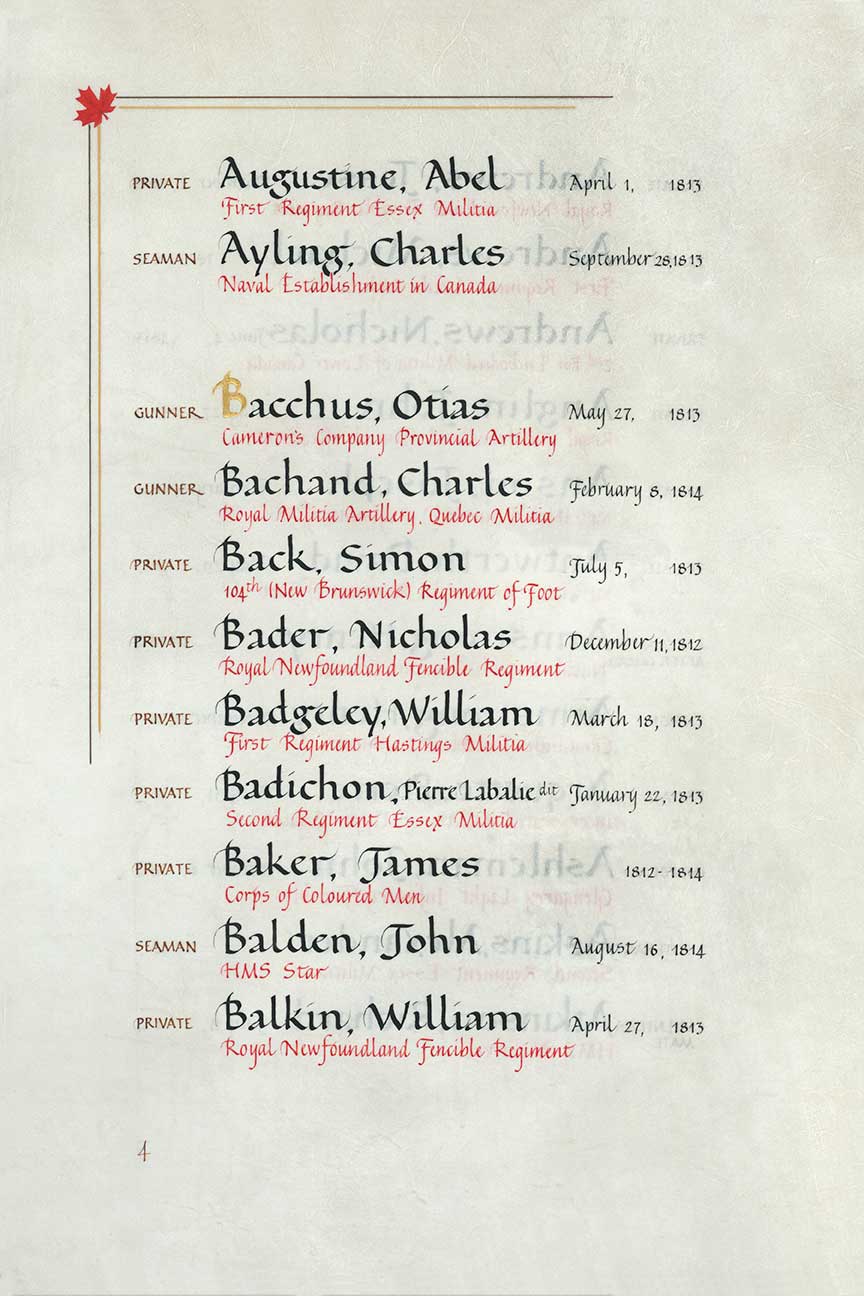 PRIVATE Augustine, Abel April 1, 1813
First Regiment Essex Militia
SEAMAN Ayling, Charles September 28, 1813
Naval Establishment in Canada
GUNNER Bacchus, Otias May 27, 1813
Cameron's Company Provincial Artillery
GUNNER Bachand, Charles February 8, 1814
Royal Militia Artillery, Quebec Militia
PRIVATE Back, Simon July 5, 1813
104th (New Brunswick) Regiment of Foot
PRIVATE Bader, Nicholas December 11, 1812
Royal Newfoundland Fencible Regiment
PRIVATE Badgeley, William March 18, 1813
First Regiment Hastings Militia
PRIVATE Badichon, Pierre Labalie dit January 22, 1813
Second Regiment Essex Militia
PRIVATE Baker, James 1812-1814
Corps of Coloured Men
SEAMAN Balden, John August 16, 1814
HMS Star
PRIVATE Balkin, William April 27, 1813
Royal Newfoundland Fencible Regiment
4